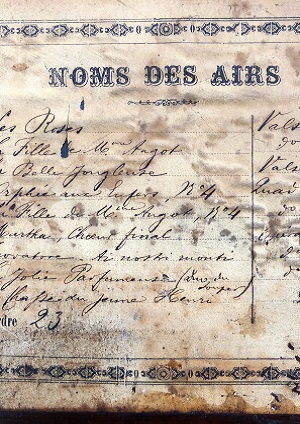 NOMS DES AIRS
Les Roses
La Fille de Mme Angot
La Belle Jongleuse
Orphée aux Enfers, No 4
La Fille de Mme Angot, No 4
Martha, Chœur final
Trovatore - Ai nostri monti
La Jolie Parfumeuse (Duo du souper)
Chasse du jeune Henri
rdre 23
Vals
do
Vals
Quad
do
do